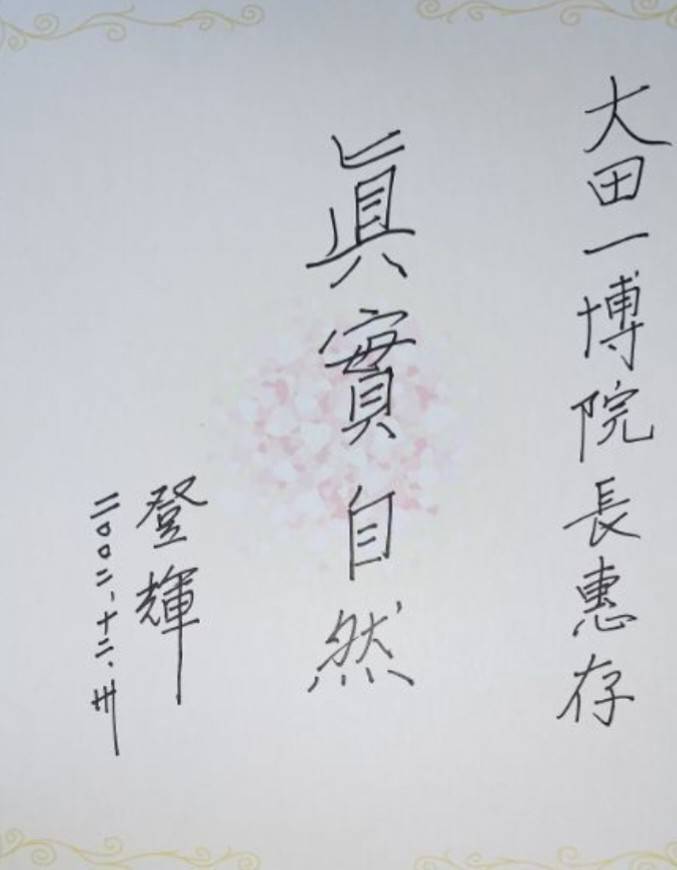 大田一博院長惠存
眞實自然
登輝
二〇〇二、十二、卅